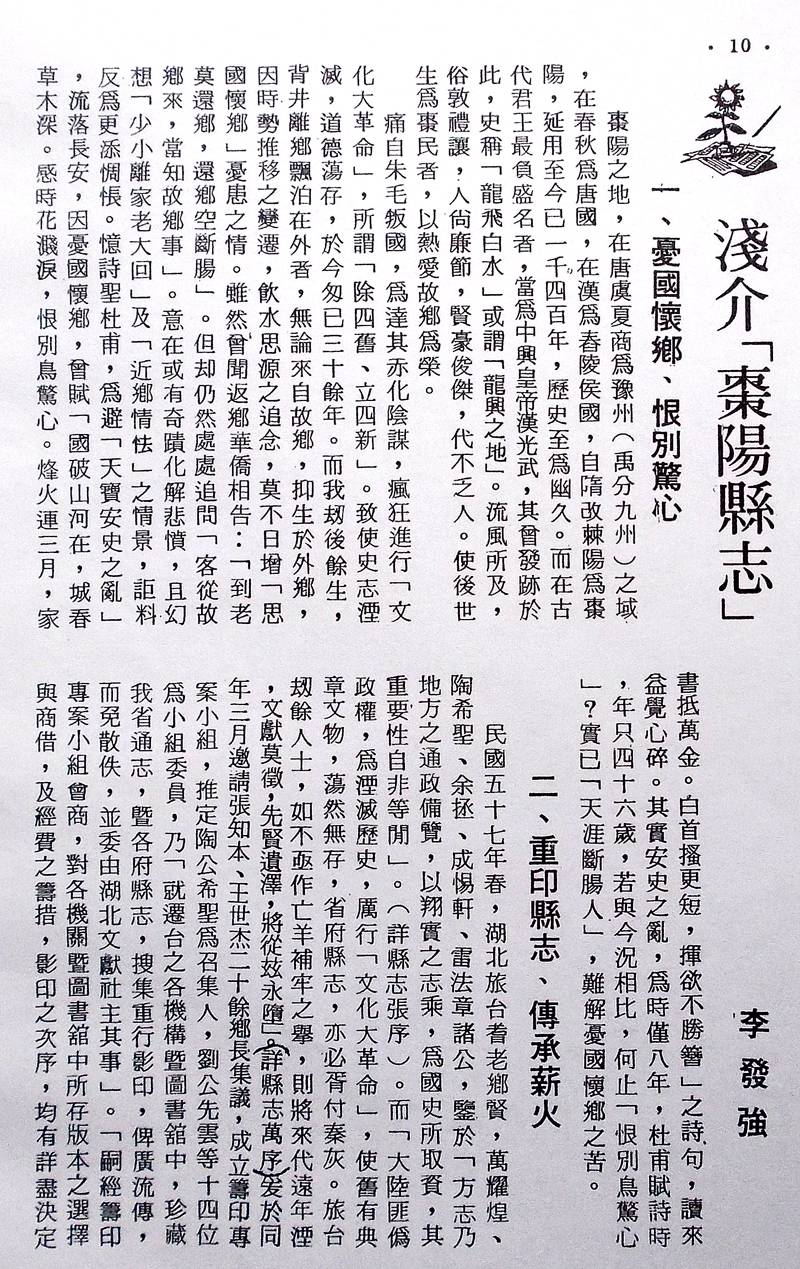 • 10 •
淺介「棗陽縣志」
李發強
一、憂國懷鄉、恨別驚心
棗陽之地，在唐虞夏商為豫州（禹分九州）之域
，在春秋為唐國，在漢為舂陵侯國，自隋改棘陽為棗
陽，延用至今已一千四百年，歷史至為幽久。而在古
代君王最負盛名者，當為中興皇帝漢光武，其曾發跡於
此，史稱「龍飛白水」或謂「龍興之地」。流風所及，
俗敦禮讓，人尙廉節，賢豪俊傑，代不乏人。使後世
生為棗民者，以熱愛故鄉為榮。
痛自朱毛叛國，為達其赤化陰謀，瘋狂進行「文
化大革命」，所謂「除四舊、立四新」。致使史志湮
滅，道德蕩存，於今匆已三十餘年。而我刼後餘生，
背井離鄉飄泊在外者，無論來自故鄉，抑生於外鄉，
因時勢推移之變遷，飲水思源之追念，莫不日增「思
國懷鄉」憂患之情。雖然曾聞返鄉華僑相告：「到老
莫還鄉，還鄉空斷腸」。但却仍然處處追問「客從故
鄉來，當知故鄉事」。意在或有奇蹟化解悲憤，且幻
想「少小離家老大回」及「近鄉情怯」之情景，詎料
反為更添惆悵。憶詩聖杜甫，為避「天寶安史之亂」
，流落長安，因憂國懷鄉，曾賦「國破山河在，城春
草木深。感時花濺淚，恨別鳥驚心。烽火連三月，家
書抵萬金。白首搔更短，揮欲不勝簪」之詩句，讀來
益覺心碎。其實安史之亂，為時僅八年，杜甫賦詩時
，年只四十六歲，若與今況相比，何止「恨別鳥驚心
」？實已「天涯斷腸人」，難解憂國懷鄉之苦。
二、重印縣志、傳承薪火
民國五十七年春，湖北旅台耆老鄉賢，萬耀煌、
陶希聖、余拯、成惕軒、雷法章諸公，鑒於「方志乃
地方之通政備覽，以翔實之志乘，為國史所取資，其
重要性自非等閒」。（詳縣志張序）。而「大陸匪偽
政權，為湮滅歷史，厲行「文化大革命」，使舊有典
章文物，蕩然無存，省府縣志，亦必胥付秦灰。旅台
刼餘人士，如不亟作亡羊補牢之舉，則將來代遠年湮
，文獻莫徵，先賢遺澤，將從玆永墮」。（詳縣志萬序）爰於同
年三月邀請張知本、王世杰二十餘鄉長集議，成立籌印專
案小組，推定陶公希聖為召集人，劉公先雲等十四位
為小組委員，乃「就遷台之各機構暨圖書舘中，珍藏
我省通志，暨各府縣志，搜集重行影印，俾廣流傳，
而免散佚，並委由湖北文獻社主其事」。「嗣經籌印
專案小組會商，對各機關暨圖書舘中所存版本之選擇
與商借，及經費之籌措，影印之次序，均有詳盡決定